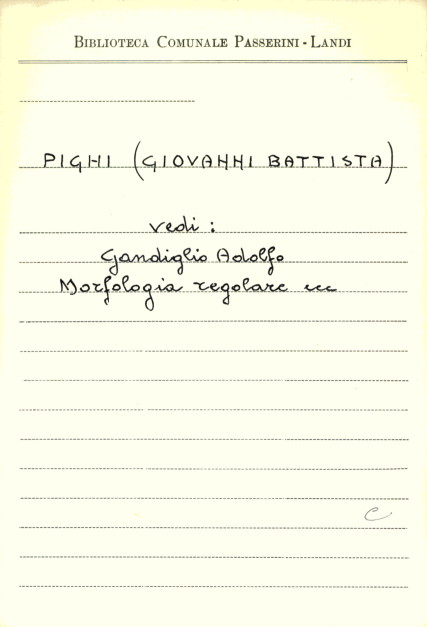 BIBLIOTECA COMUNALE PASSERINI - LANDI
PIGHI (GIOVANNI BATTISTA)
vedi :
Gandiglio Adolfo
Morfologia regolare ecc
C